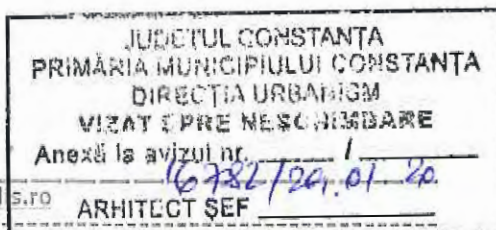 JUDEȚUL CONSTANȚA
PRIMĂRIA MUNICIPIULUI CONSTANȚA
DIRECȚIA URBANISM
VIZAT SPRE NESCHIMBARE
Anexă la avizul nr. /
16782/20.01.20
s.ro
ARHITECT ȘEF